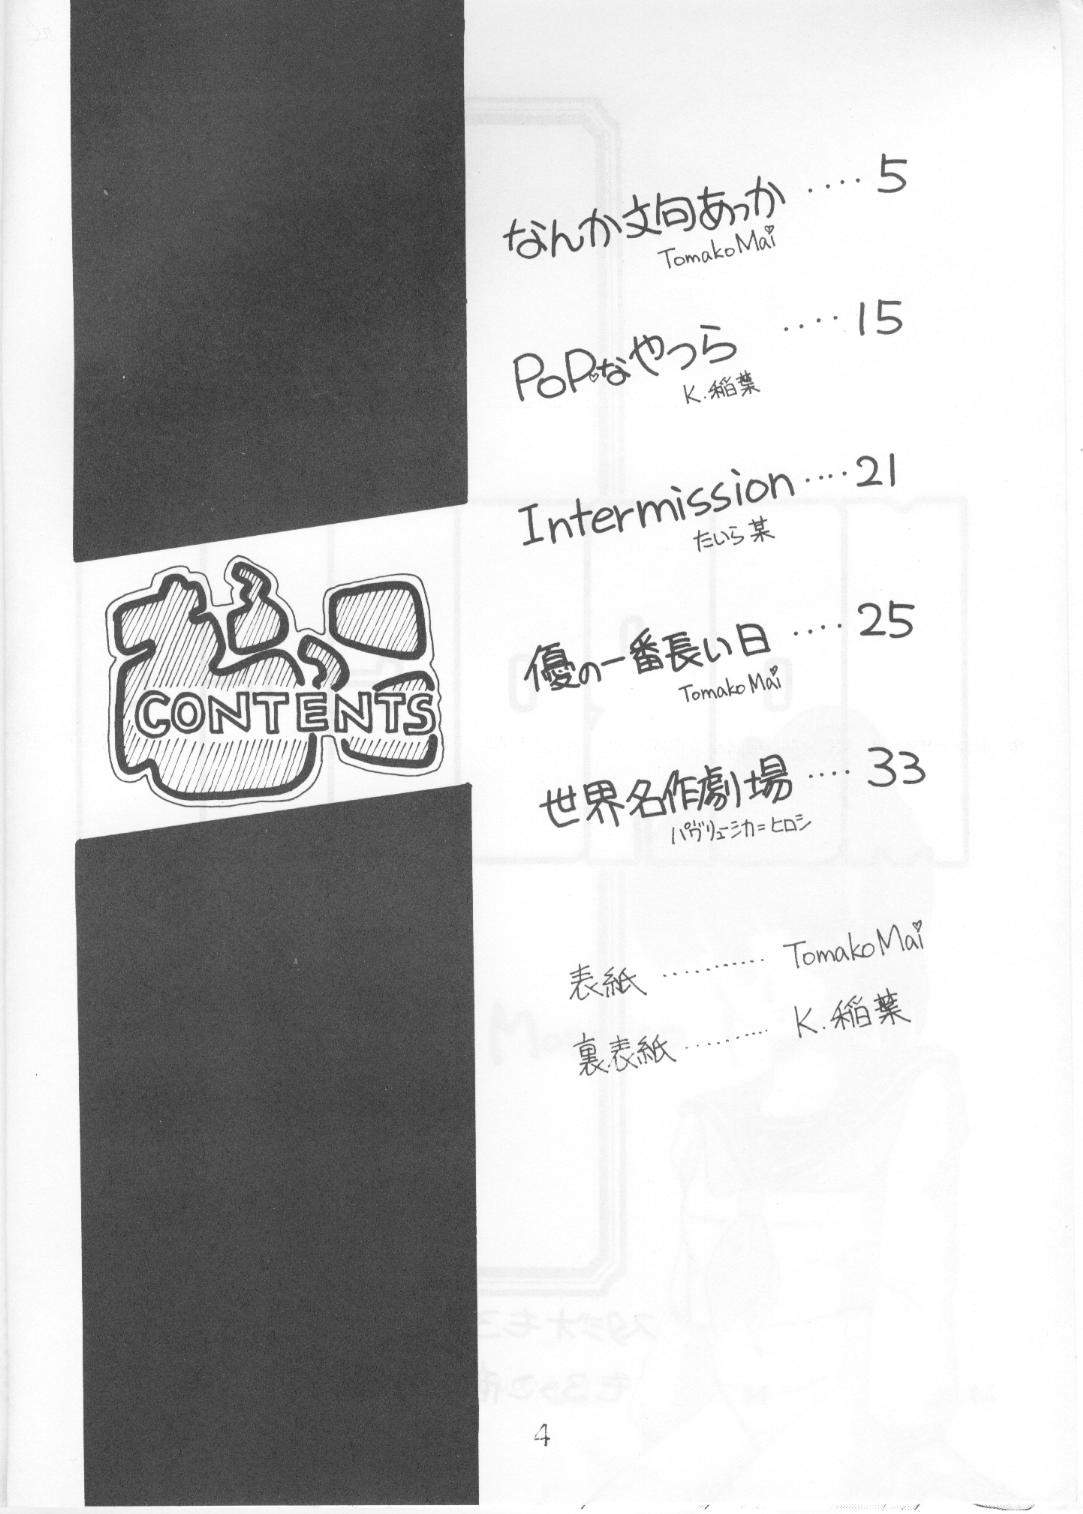 なんか文句あっか ････ 5
TomakoMai
PoPなやつら ････ 15
K.稲葉
Intermission ････ 21
たいら某
優の一番長い日 ････ 25
TomakoMai
世界名作劇場 ････ 33
パヴリューシカ=ヒロシ
CONTENTS
表紙 ･･････････ TomakoMai
裏表紙 ･･････････ K.稲葉
4